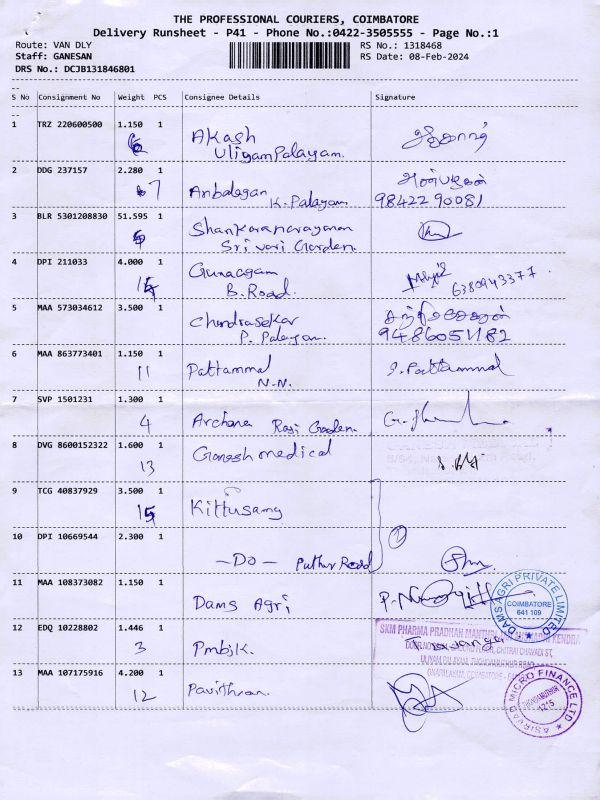 THE PROFESSIONAL COURIERS, COIMBATORE
Delivery Runsheet - P41 - Phone No.:0422-3505555 - Page No.:1
Route: VAN DLY
RS No.: 1318468
Staff: GANESAN
RS Date: 08-Feb-2024
DRS No.: DCJB131846801
S No Consignment No Weight PCS Consignee Details Signature
1 TRZ 220600500 1.150 1 Akash
Uligampalayam.
2 DDG 237157 2.280 1 Anbalagan அன்பழகன்
7 K. Palayam 98422 90081
3 BLR 5301208830 51.595 1 Shankaranarayanan
Sri vari Garden.
4 DPI 211033 4.000 1 Gunaagam
B. Road. 6380943377.
5 MAA 573034612 3.500 1 Chandrasekar
P. Palayam. 9486051182
6 MAA 863773401 1.150 1 Pattammal
11 N.N.
7 SVP 1501231 1.300 1
4 Archana Raji Garden.
8 DVG 8600152322 1.600 1 Ganesh medical
13
9 TCG 40837929 3.500 1
15 Kittusamy
10 DPI 10669544 2.300 1
- Do - Puthur Road
11 MAA 108373082 1.150 1
Dams Agri
DAMS AGRI PRIVATE LIMITED
COIMBATORE
641 109
12 EDQ 10228802 1.446 1
3 Pmbjk.
SKM PHARMA PRADHAN MANTRI KENDRA
13 MAA 107175916 4.200 1
12 Pavithran.
ASIRVAD MICRO FINANCE LTD